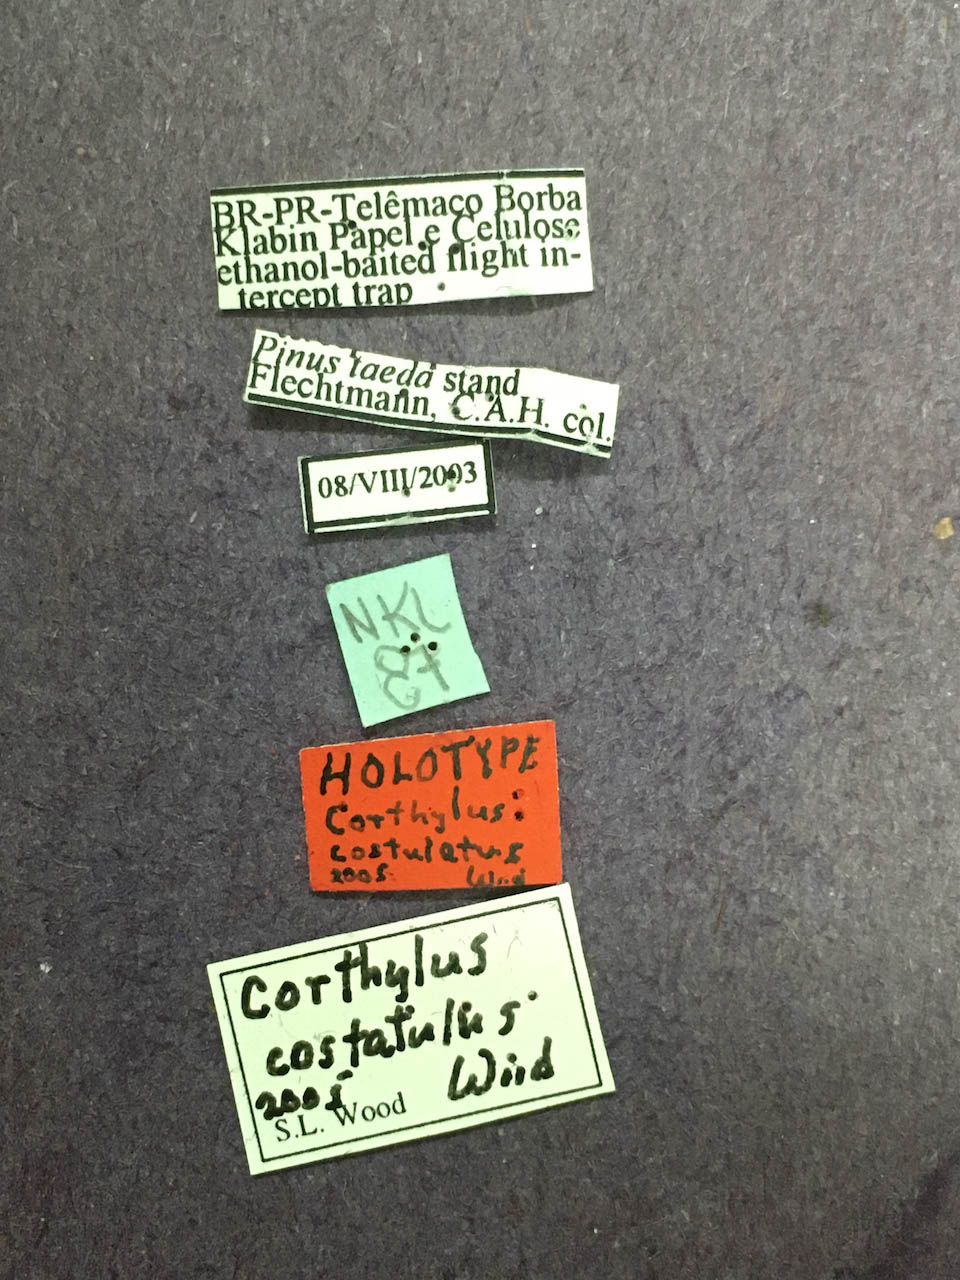 BR-PR-Telêmaco Borba
Klabin Papel e Celulose
ethanol-baited flight in-
tercept trap
Pinus taeda stand
Flechtmann, C.A.H. col.
08/VIII/2003
NKL
87
HOLOTYPE
Corthylus
costulatus
2005 Wood
Corthylus
costatulus
2005 Wood
S.L. Wood